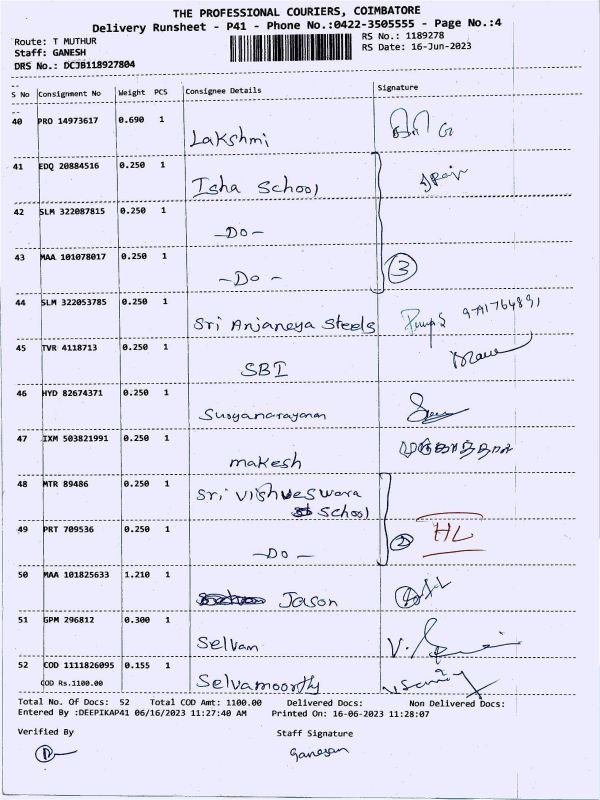 THE PROFESSIONAL COURIERS, COIMBATORE
Delivery Runsheet - P41 - Phone No.:0422-3505555 - Page No.:4
Route: T MUTHUR
RS No.: 1189278
Staff: GANESH
RS Date: 16-Jun-2023
DRS No.: DCJB118927804
S No Consignment No Weight PCS Consignee Details Signature
40 PRO 14973617 0.690 1
Lakshmi
41 EDQ 20884516 0.250 1
Isha School
42 SLM 322087815 0.250 1
-Do-
43 MAA 101078017 0.250 1
-Do-
3
44 SLM 322053785 0.250 1
Sri Anjaneya Steels
45 TVR 4118713 0.250 1
SBI
46 HYD 82674371 0.250 1
Suryanarayanan
47 IXM 503821991 0.250 1
makesh
48 MTR 89486 0.250 1
Sri Vishveswara
School
49 PRT 709536 0.250 1
-Do-
2
HL
50 MAA 101825633 1.210 1
Jason
51 GPM 296812 0.300 1
Selvam
52 COD 1111826095 0.155 1
COD Rs.1100.00
Selvamoorthy
Total No. Of Docs: 52 Total COD Amt: 1100.00 Delivered Docs: Non Delivered Docs:
Entered By :DEEPIKAP41 06/16/2023 11:27:40 AM Printed On: 16-06-2023 11:28:07
Verified By Staff Signature
Ganesan